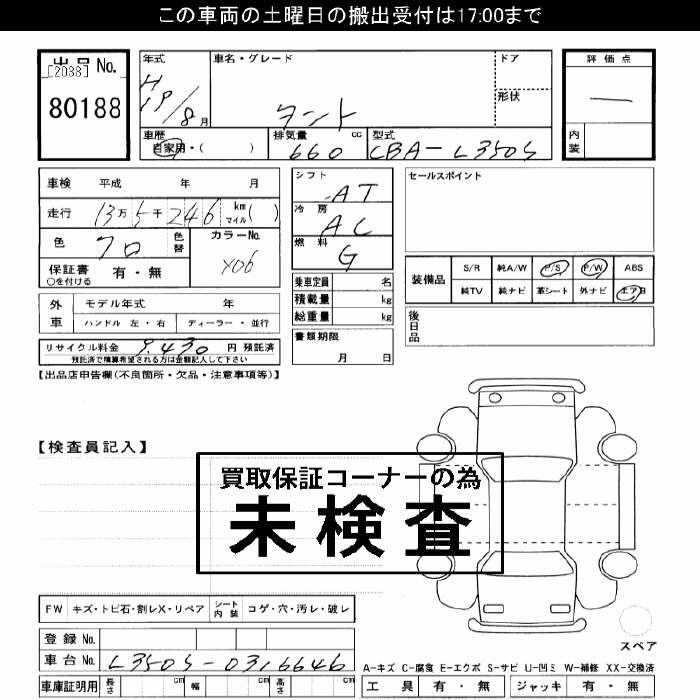 この車両の土曜日の搬出受付は17:00まで
出品 No. [2038]
80188
年式 H19/8月
車名・グレード タント
ドア
形状
評価点 —
内装
車歴 自家用・( )
排気量 660 cc
型式 CBA-L350S
車検 平成 年 月
走行 13万5千246 km マイル( )
色 クロ 色替
カラーNo. X06
保証書 ○を付ける 有・無
シフト AT
冷房 AC
燃料 G
セールスポイント
乗車定員 名
積載量 kg
総重量 kg
書類期限
月 日
装備品 S/R 純A/W P/S P/W ABS
純TV 純ナビ 革シート 外ナビ エアB
後日品
外車 モデル年式 年
ハンドル 左・右 ディーラー・並行
リサイクル料金 9,430 円 預託済
預託済で積算希望される方は金額記入して下さい
【出品店申告欄(不良個所・欠品・注意事項等)】
【検査員記入】
買取保証コーナーの為
未検査
FW キズ・トビ石・割レX・リペア シート内装 コゲ・穴・汚レ・破レ
登録 No.
車台 No. L350S-0316646
車庫証明用 長さ cm 幅 cm 高さ cm
スペア
A-キズ C-腐食 E-エクボ S-サビ U-凹ミ W-補修 XX-交換済
工具 有・無 ジャッキ 有・無